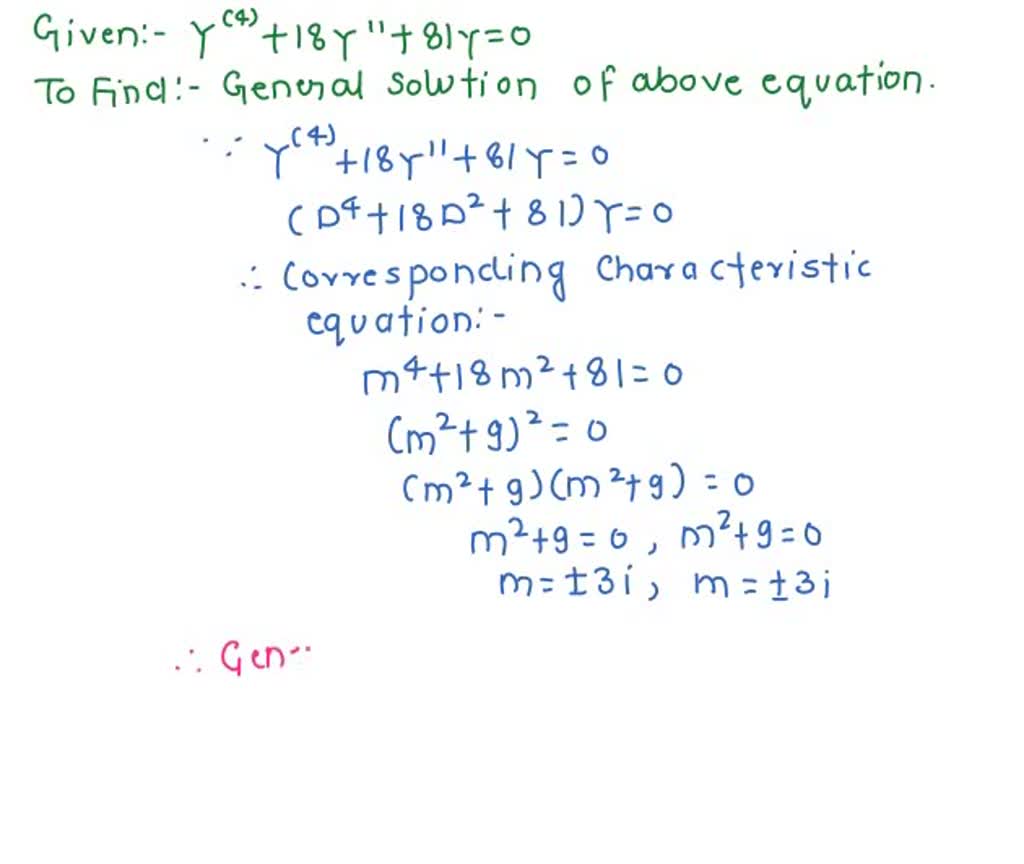 Given:- Y⁽⁴⁾+18Y"+81Y=0
To Find:- General solution of above equation.
∵ Y⁽⁴⁾+18Y"+81Y=0
(D⁴+18D²+81)Y=0
∴ Corresponding Characteristic
equation:-
m⁴+18m²+81=0
(m²+9)²=0
(m²+9)(m²+9)=0
m²+9=0, m²+9=0
m=±3i, m=±3i
∴ Gen--